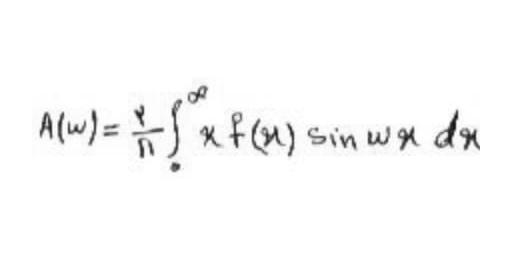 A(w) = ۲/π ∫₀^∞ x f(x) sin wx dx